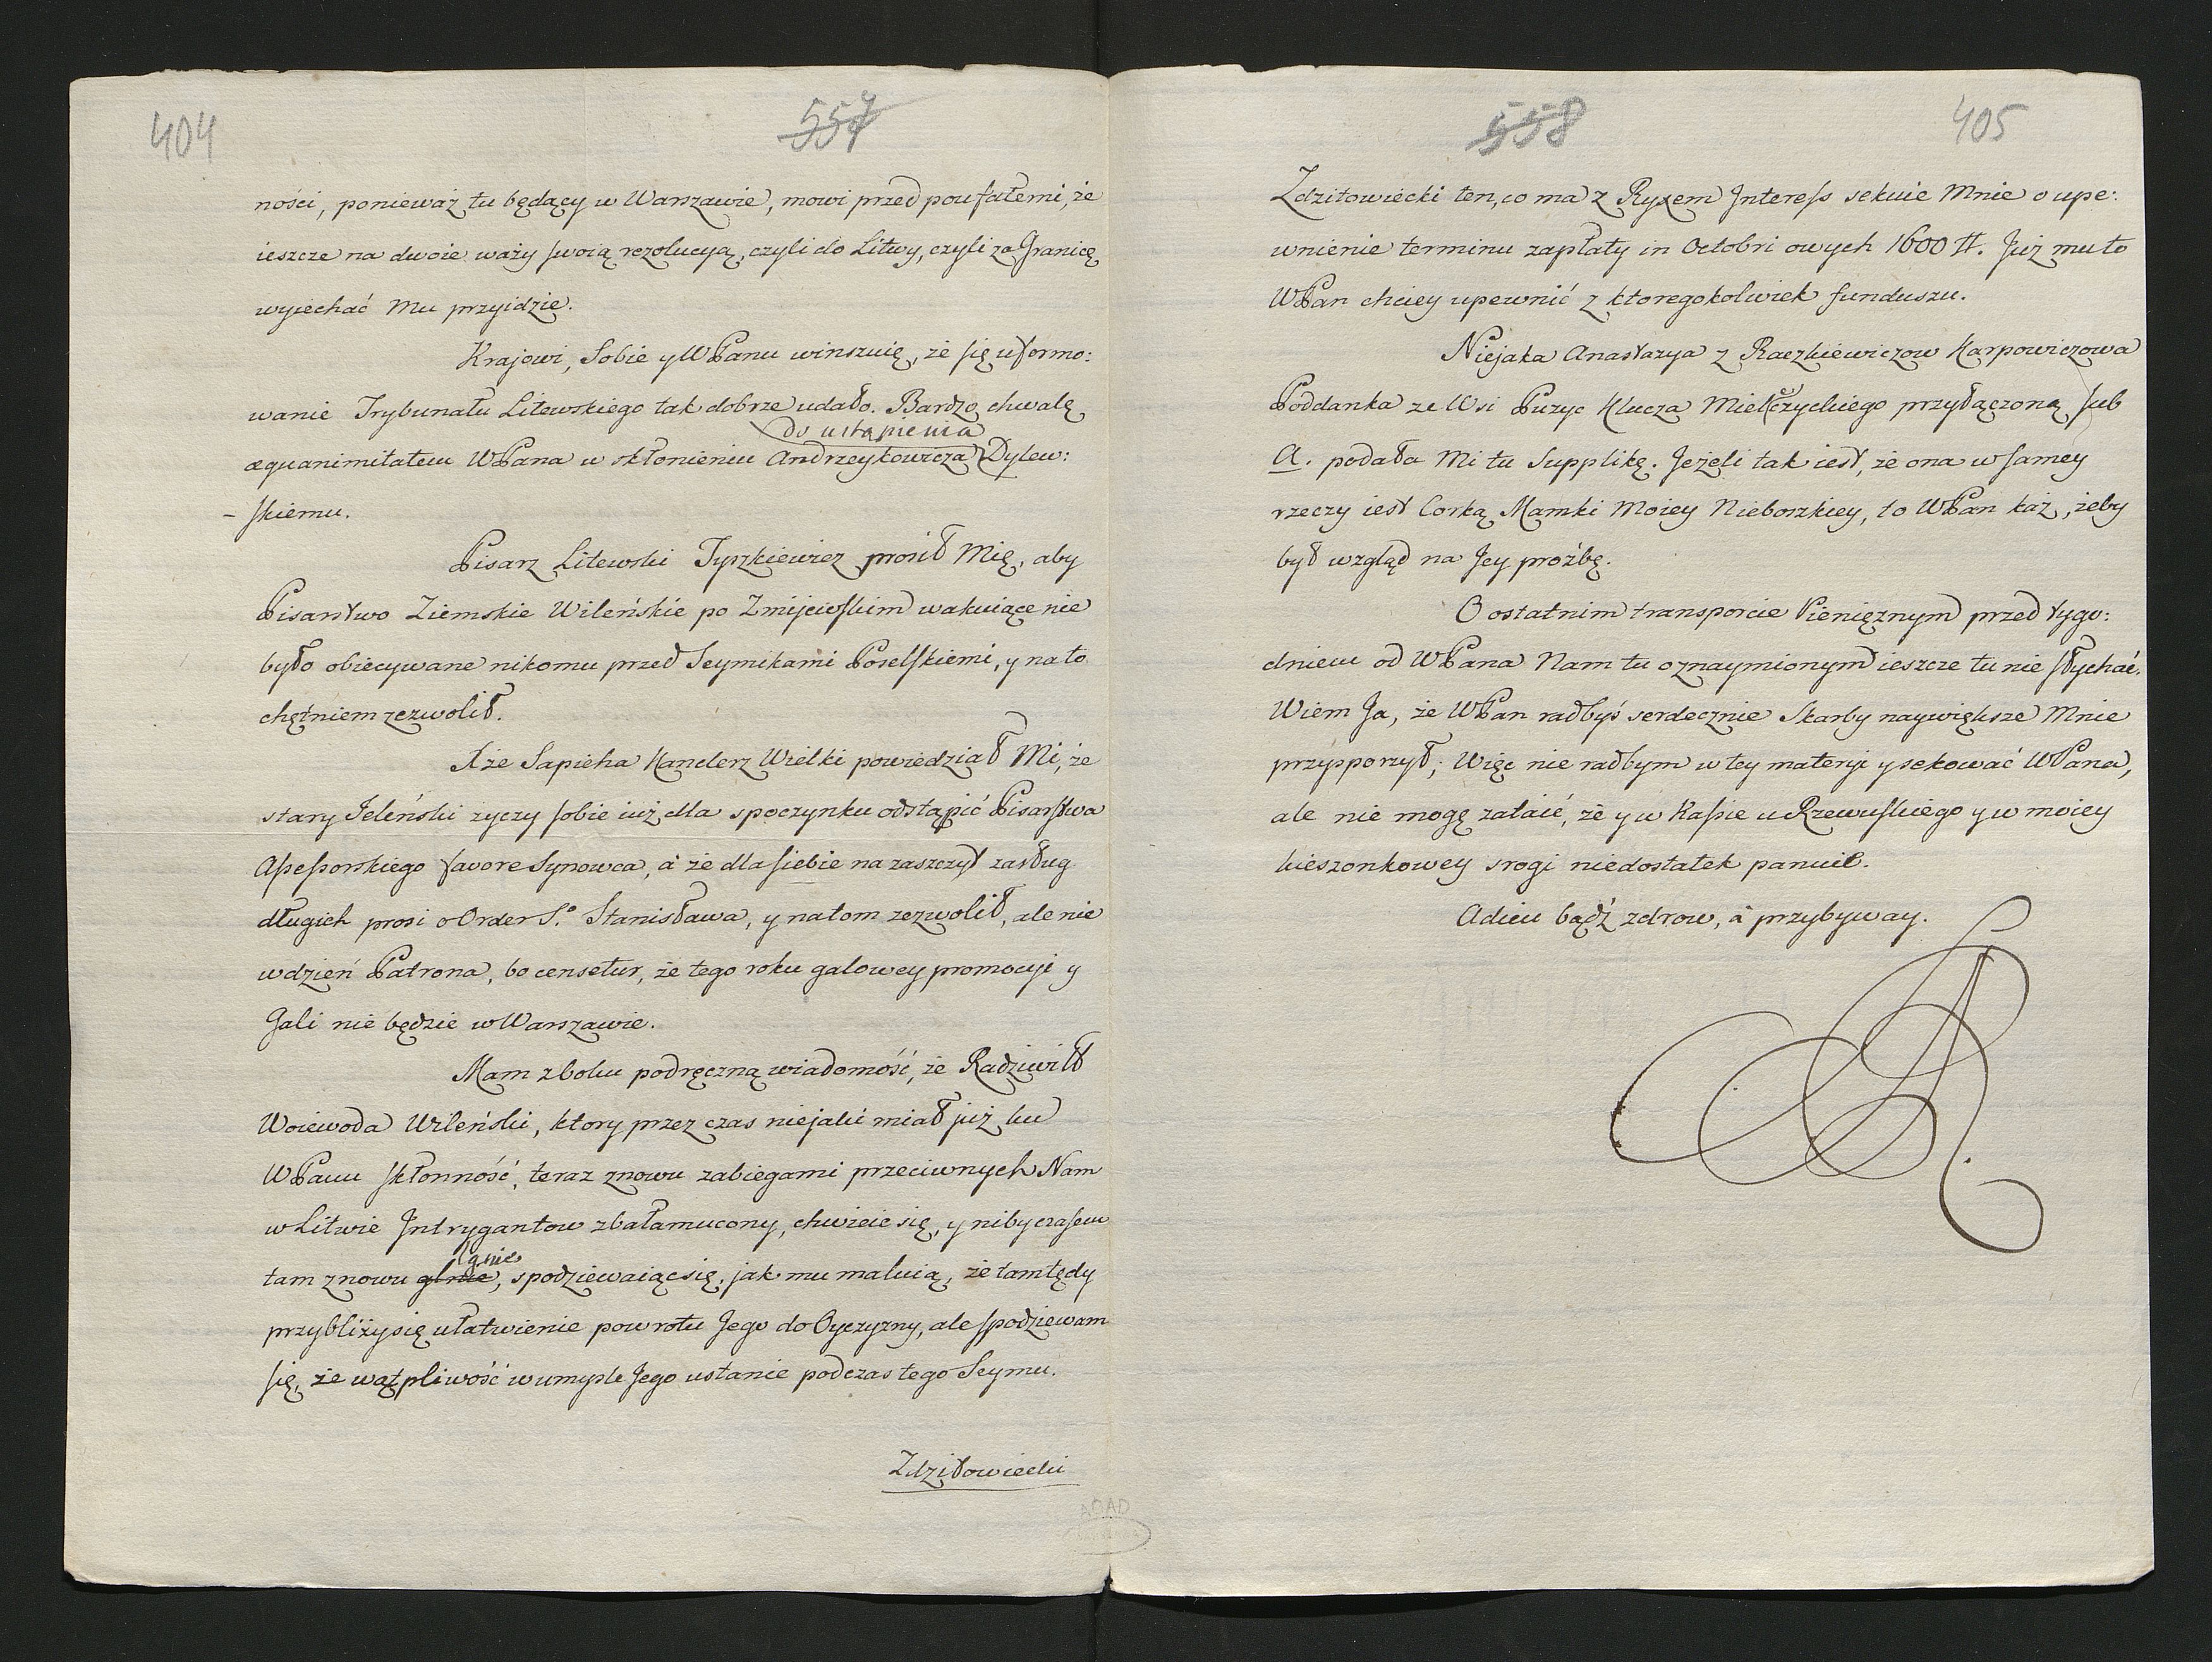 404
557
ności, ponieważ tu będący w Warszawie, mowi przed poufałemi, że
ieszcze na dwoie waży swoią rezolucyą, czyli do Litwy, czyli za Granicę
wyjechać Mu przyidzie.
Krajowi, Sobie y WPanu winszuię, że się uformo:
wanie Trybunału Litewskiego tak dobrze udało. Bardzo chwalę
do ustąpienia
æquanimitatem WPana w skłonieniu Andrzeykowicza Dylew:
- skiemu.
Pisarz Litewski Tyszkiewicz prosił Mię, aby
Pisarstwo Ziemskie Wileńskie po Zmijewskim wakuiące nie
było obiecywane nikomu przed Seymikami Poselskiemi, y na to
chętniem zezwolił.
Xże Sapieha Kanclerz Wielki powiedział Mi, że
stary Jeleński życzy sobie iuż dla spoczynku odstąpić Pisarstwa
Assessorskiego favore Synowca, à że dla siebie na zaszczyt zasług
długich prosi o Order S.º Stanisława, y na tom zezwolił, ale nie
w dzień Patrona, bo censetur, że tego roku galowey promocyi y
Gali nie będzie w Warszawie.
Mam z boku podręczną wiadomość, że Radziwiłł
Woiewoda Wileński, ktory przez czas niejaki miał już ku
WPanu skłonność, teraz znowu zabiegami przeciwnych Nam
w Litwie Intrygantow zbałamucony, chwieie się, y niby czasem
lgnie
tam znowu glnie, spodziewaiąc się, jak mu maluią, że tamtędy
przybliży się ułatwienie powrotu Jego do Oyczyzny, ale spodziewam
się, że wątpliwość w umyśle Jego ustanie podczas tego Seymu.
Zdziłowiecki
558
405
Zdzitowiecki ten, co ma z Ryxem Interess sekuie Mnie o upe:
wnienie terminu zapłaty in Octobri owych 1600 #. Już mu to
WPan chciey upewnić z ktoregokolwiek funduszu.
Niejaka Anastazya z Raczkiewiczow Karpowiczowa
Poddanka ze Wsi Puzyc Klucza Mielczyckiego przyłączoną sub
A. podała Mi tu Supplikę. Jeżeli tak iest, że ona w samey
rzeczy iest Corką Mamki Moiey Nieboszkiey, to WPan każ, żeby
był wzgląd na Jey proźbę.
O ostatnim transporcie Pieniężnym przed tygo:
dniem od WPana Nam tu oznaymionym ieszcze tu nie słychać.
Wiem Ja, że WPan radbyś serdecznie Skarby naywiększe Mnie
przysporzył; Więc nie radbym w tey materyi y sekować WPana,
ale nie mogę zataić, że y w Kassie u Rzewuskiego y w moiey
kieszonkowey srogi niedostatek panuie.
Adieu bądź zdrow, à przybyway.